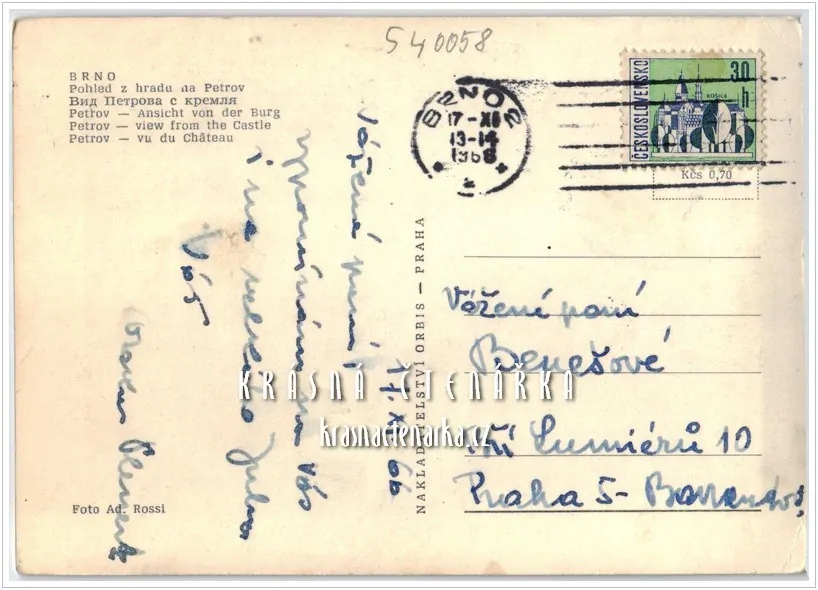 540058
BRNO
Pohled z hradu na Petrov
Вид Петрова с кремля
Petrov — Ansicht von der Burg
Petrov — view from the Castle
Petrov — vu du Château
BRNO 2
17 -XI
13-14
1966
ČESKOSLOVENSKO
30
h
KOŠICE
Kčs 0,70
17.XI.66
Vážená paní,
vzpomínám na Vás
i na velkého Julia
Váš
NAKLADATELSTVÍ ORBIS — PRAHA
Vážení paní
Benešové
Lumiérů 10
Praha 5 -
Foto Ad. Rossi
KRÁSNÁ ČTENÁŘKA
krasnactenarka.cz